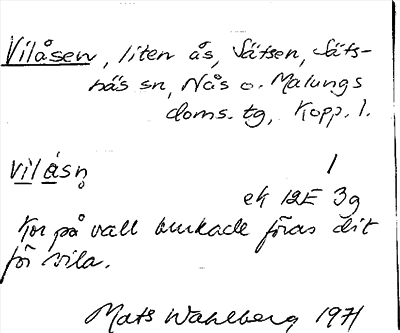 Vilåsen, liten ås, Sätsen, Säfs-
näs sn, Nås o. Malungs
doms. tg, Kopp. l.
vilåsn̥ 1
ek 12E 3g
Kor på vall brukade föras dit
för vila.
Mats Wahlberg 1971